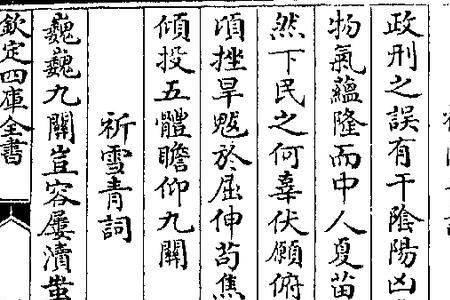 政刑之誤有干陰陽凶
物氣蘊隆而中人夏苗
然下民之何辜伏願俯
頃挫旱魃於屈伸苟焦
傾投五體瞻仰九關
祈雪青詞
巍巍九關豈容屢瀆蚩
欽定四庫全書